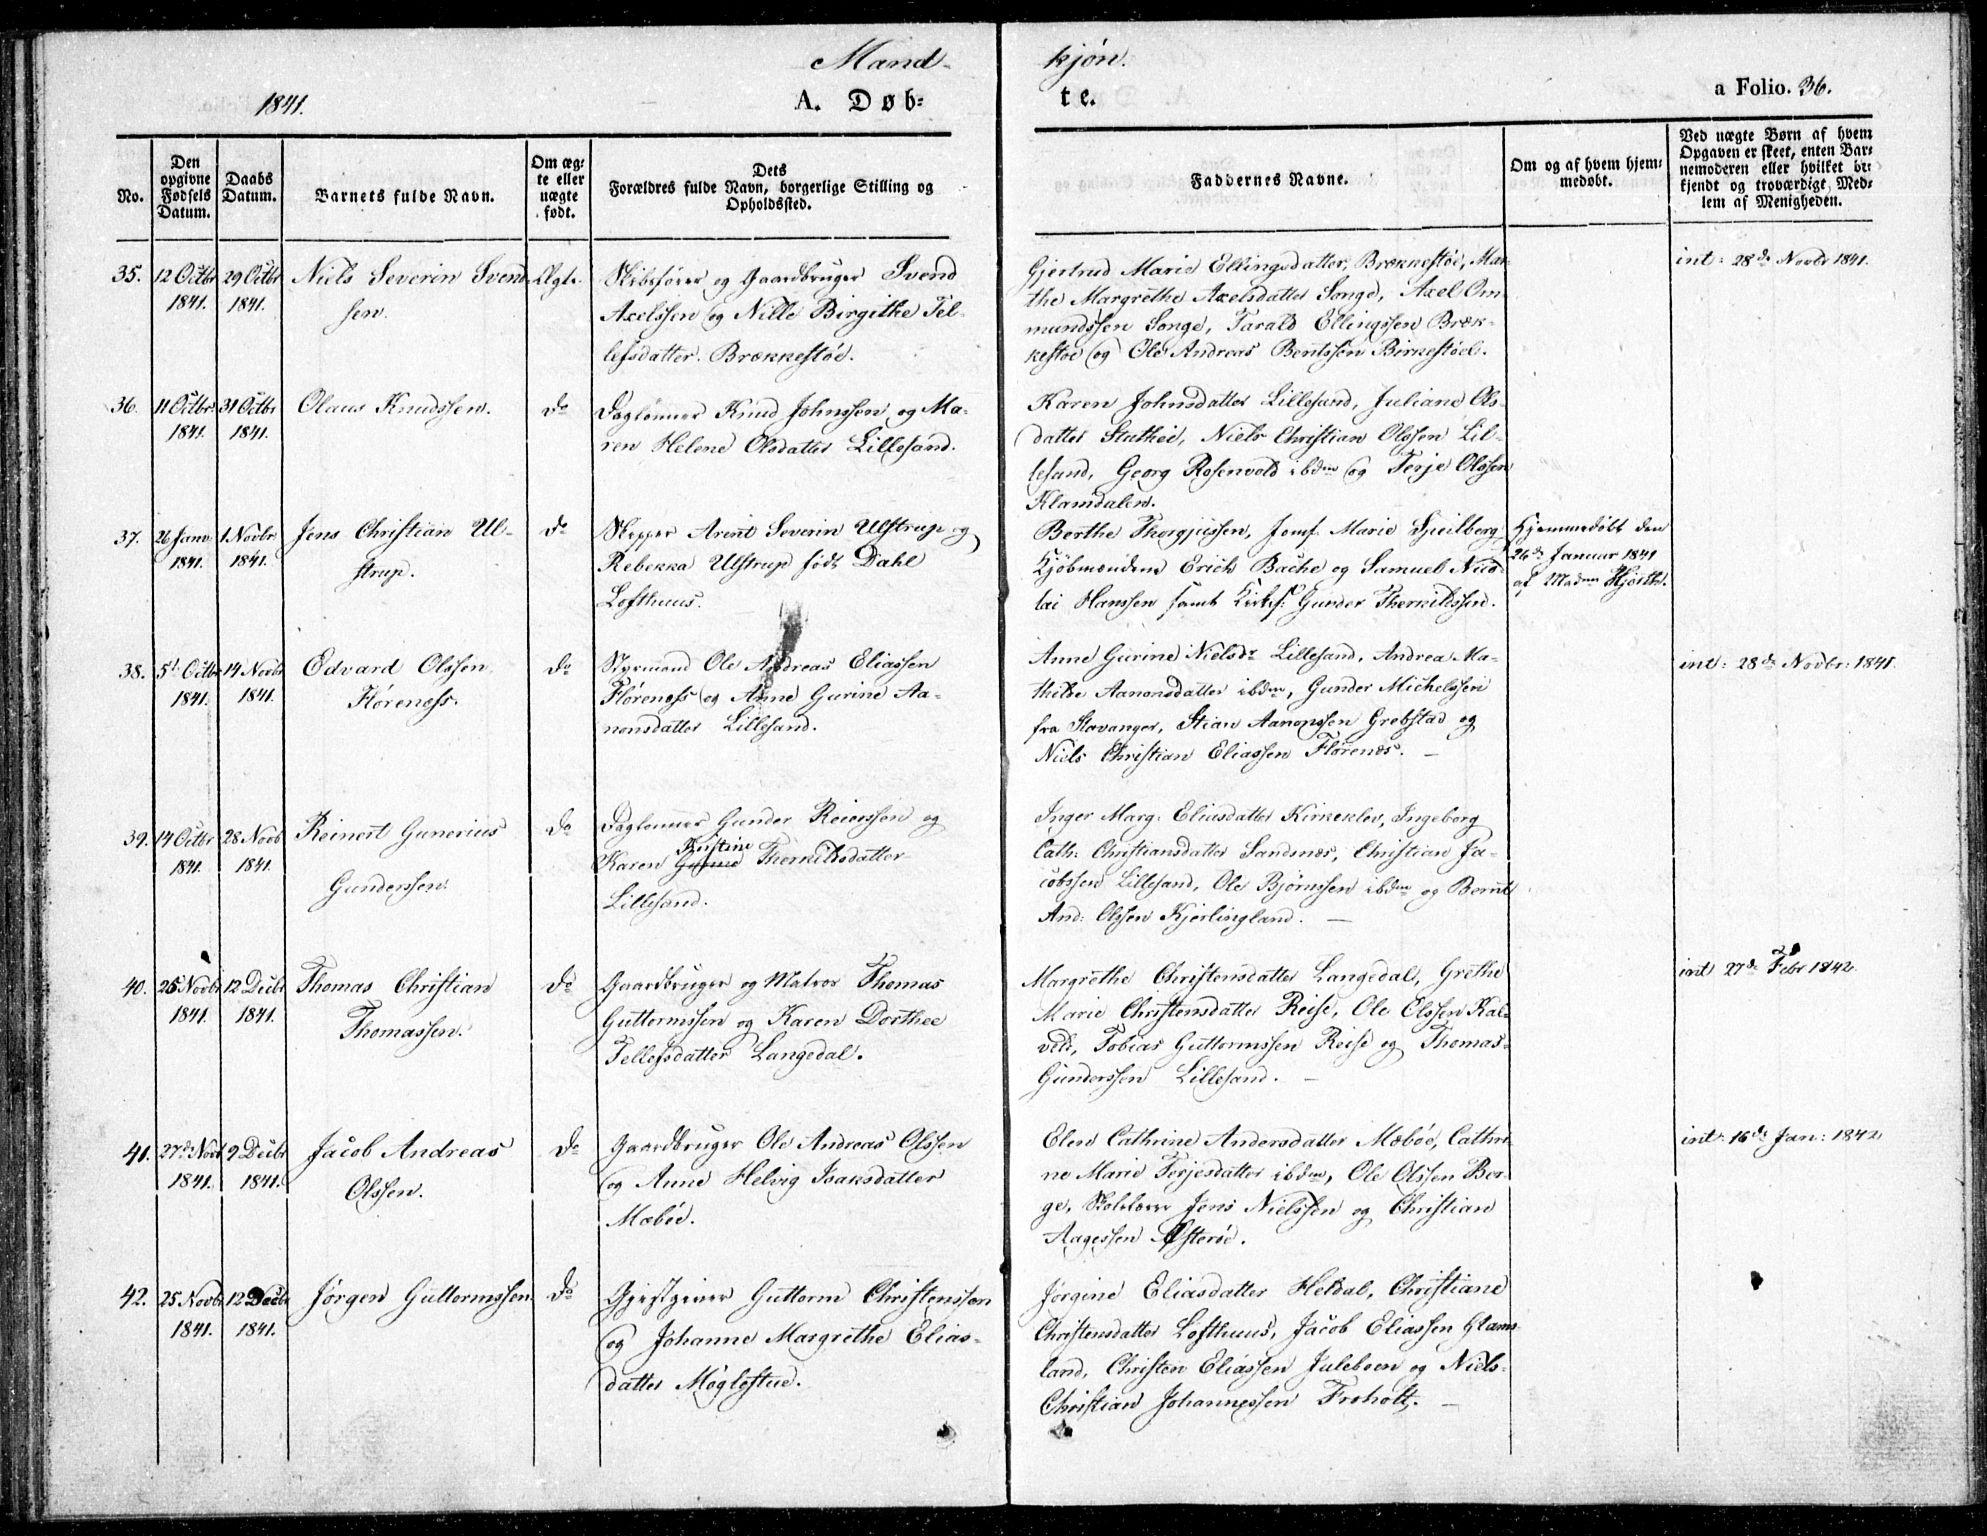 Mand- kjön.
1841. A. Døb- te. a Folio. 36.
No.
Den opgivne Fødsels Datum.
Daabs Datum.
Barnets fulde Navn.
Om æg- te eller nægte født.
Dets
Forældres fulde Navn, borgerlige Stilling og
Opholdssted.
Faddernes Navne.
Om og af hvem hjem-
medøbt.
Ved nægte Børn af hvem
Opgaven er skeet, enten Bar-
nemoderen eller hvilket be-
kjendt og troværdigt Med-
lem af Menigheden.
35. 12 Octbr 1841. 29 Octbr 1841.
Niels Severin Svend-
sen.
Ægte.
Skibsfører og Gaardbruger Svend
Axelssen og Nille Birgithe Tel-
lefsdatter. Brækkestöe.
Gjertrud Marie Ellingsdatter, Brækkestöe, Mar-
the Margrethe Axelsdatter Songe, Axel Om-
mundssen Songe, Tarald Ellingssen Bræk-
kestöe og Ole Andreas Bentssen Birkestöel.
int: 28de Novbr 1841.
36. 11 Octbr. 1841. 31 Octbr 1841.
Olaus Knudssen.
do
Daglönner Knud Johnssen og Ma-
ren Helene Olsdatter Lillesand.
Karen Johnsdatter Lillesand, Juliane Ols-
datter Stutheie, Niels Christian Olssen Lil-
lesand, Georg Rosenvold ibdm og Terje Olssen
Klamdalen.
37. 26 Janv 1841. 1 Novbr 1841.
Jens Christian Ul-
strup.
do
Skipper Arent Severin Ulstrup og
Rebekka Ulstrup födt Dahl
Lofthuus.
Berthe Thorgjussen, Jomf. Marie Speilberg,
Kjöbmændene Erich Bache og Samuel Nico-
lai Hanssen samt Kirkes: Gunder Therkildssen.
Hjemmedöbt den
26de Januar 1841
af Madm Hjorth.
38. 5t Octbr 1841. 14 Novbr 1841.
Edvard Olssen
Flörenæss.
do
Styrmand Ole Andreas Eliassen
Flörenæss og Anne Gurine Aa-
nonsdatter Lillesand.
Anne Gurine Nielsdr Lillesand, Andrea Ma-
thilde Aanonsdatter ibdm, Gunder Michelssen
fra Stavanger, Stian Aanonssen Grebstad og
Niels Christian Eliassen Flörenæs.
int: 28de Novbr: 1841.
39. 14 Octbr 1841. 28 Novb 1841.
Reinert Gunerius
Gunderssen.
do
Daglönner Gunder Reierssen og
Kirstine
Karen Gurine Therkildsdatter
Lillesand.
Inger Marg: Eliasdatter Kirkeklev, Ingeborg
Cath: Christiansdatter Sandsnæs, Christian Ja-
cobssen Lillesand, Ole Björnssen ibdm og Bernt
And: Olssen Kjerlingland.
40. 25 Novbr 1841. 12 Decbr 1841.
Thomas Christian
Thomassen.
do
Gaardbruger og Matros Thomas
Guttormssen og Karen Dorthee
Tellefsdatter Langedal.
Margrethe Christensdatter Langedal, Grethe
Marie Christensdatter Reise, Ole Olssen Kal-
vild, Tobias Guttormssen Reise og Thomas
Gunderssen Lillesand.
int 27de Febr 1842.
41. 27de Novb 1841. 9 Decbr 1841.
Jacob Andreas
Olssen.
do
Gaardbruger Ole Andreas Olssen
og Anne Helvig Isaksdatter
Mæböe.
Elen Cathrine Andersdatter Mæböe, Cathri-
ne Marie Terjesdatter ibdm, Ole Olssen Ber-
ge, Skolelærer Jens Nielssen og Christian
Aagessen Østeröe.
int: 16de Jan: 1842.
42. 25 Novbr 1841. 12 Decbr 1841.
Jörgen Guttormssen
do
Gjestgiver Guttorm Christenssen
og Johanne Margrethe Elias-
datter Möglestue.
Jörgine Eliasdatter Heldal, Christiane
Christensdatter Lofthuus, Jacob Eliassen Glams-
land, Christen Eliassen Juleboen og Niels
Christian Johannessen Froholt.